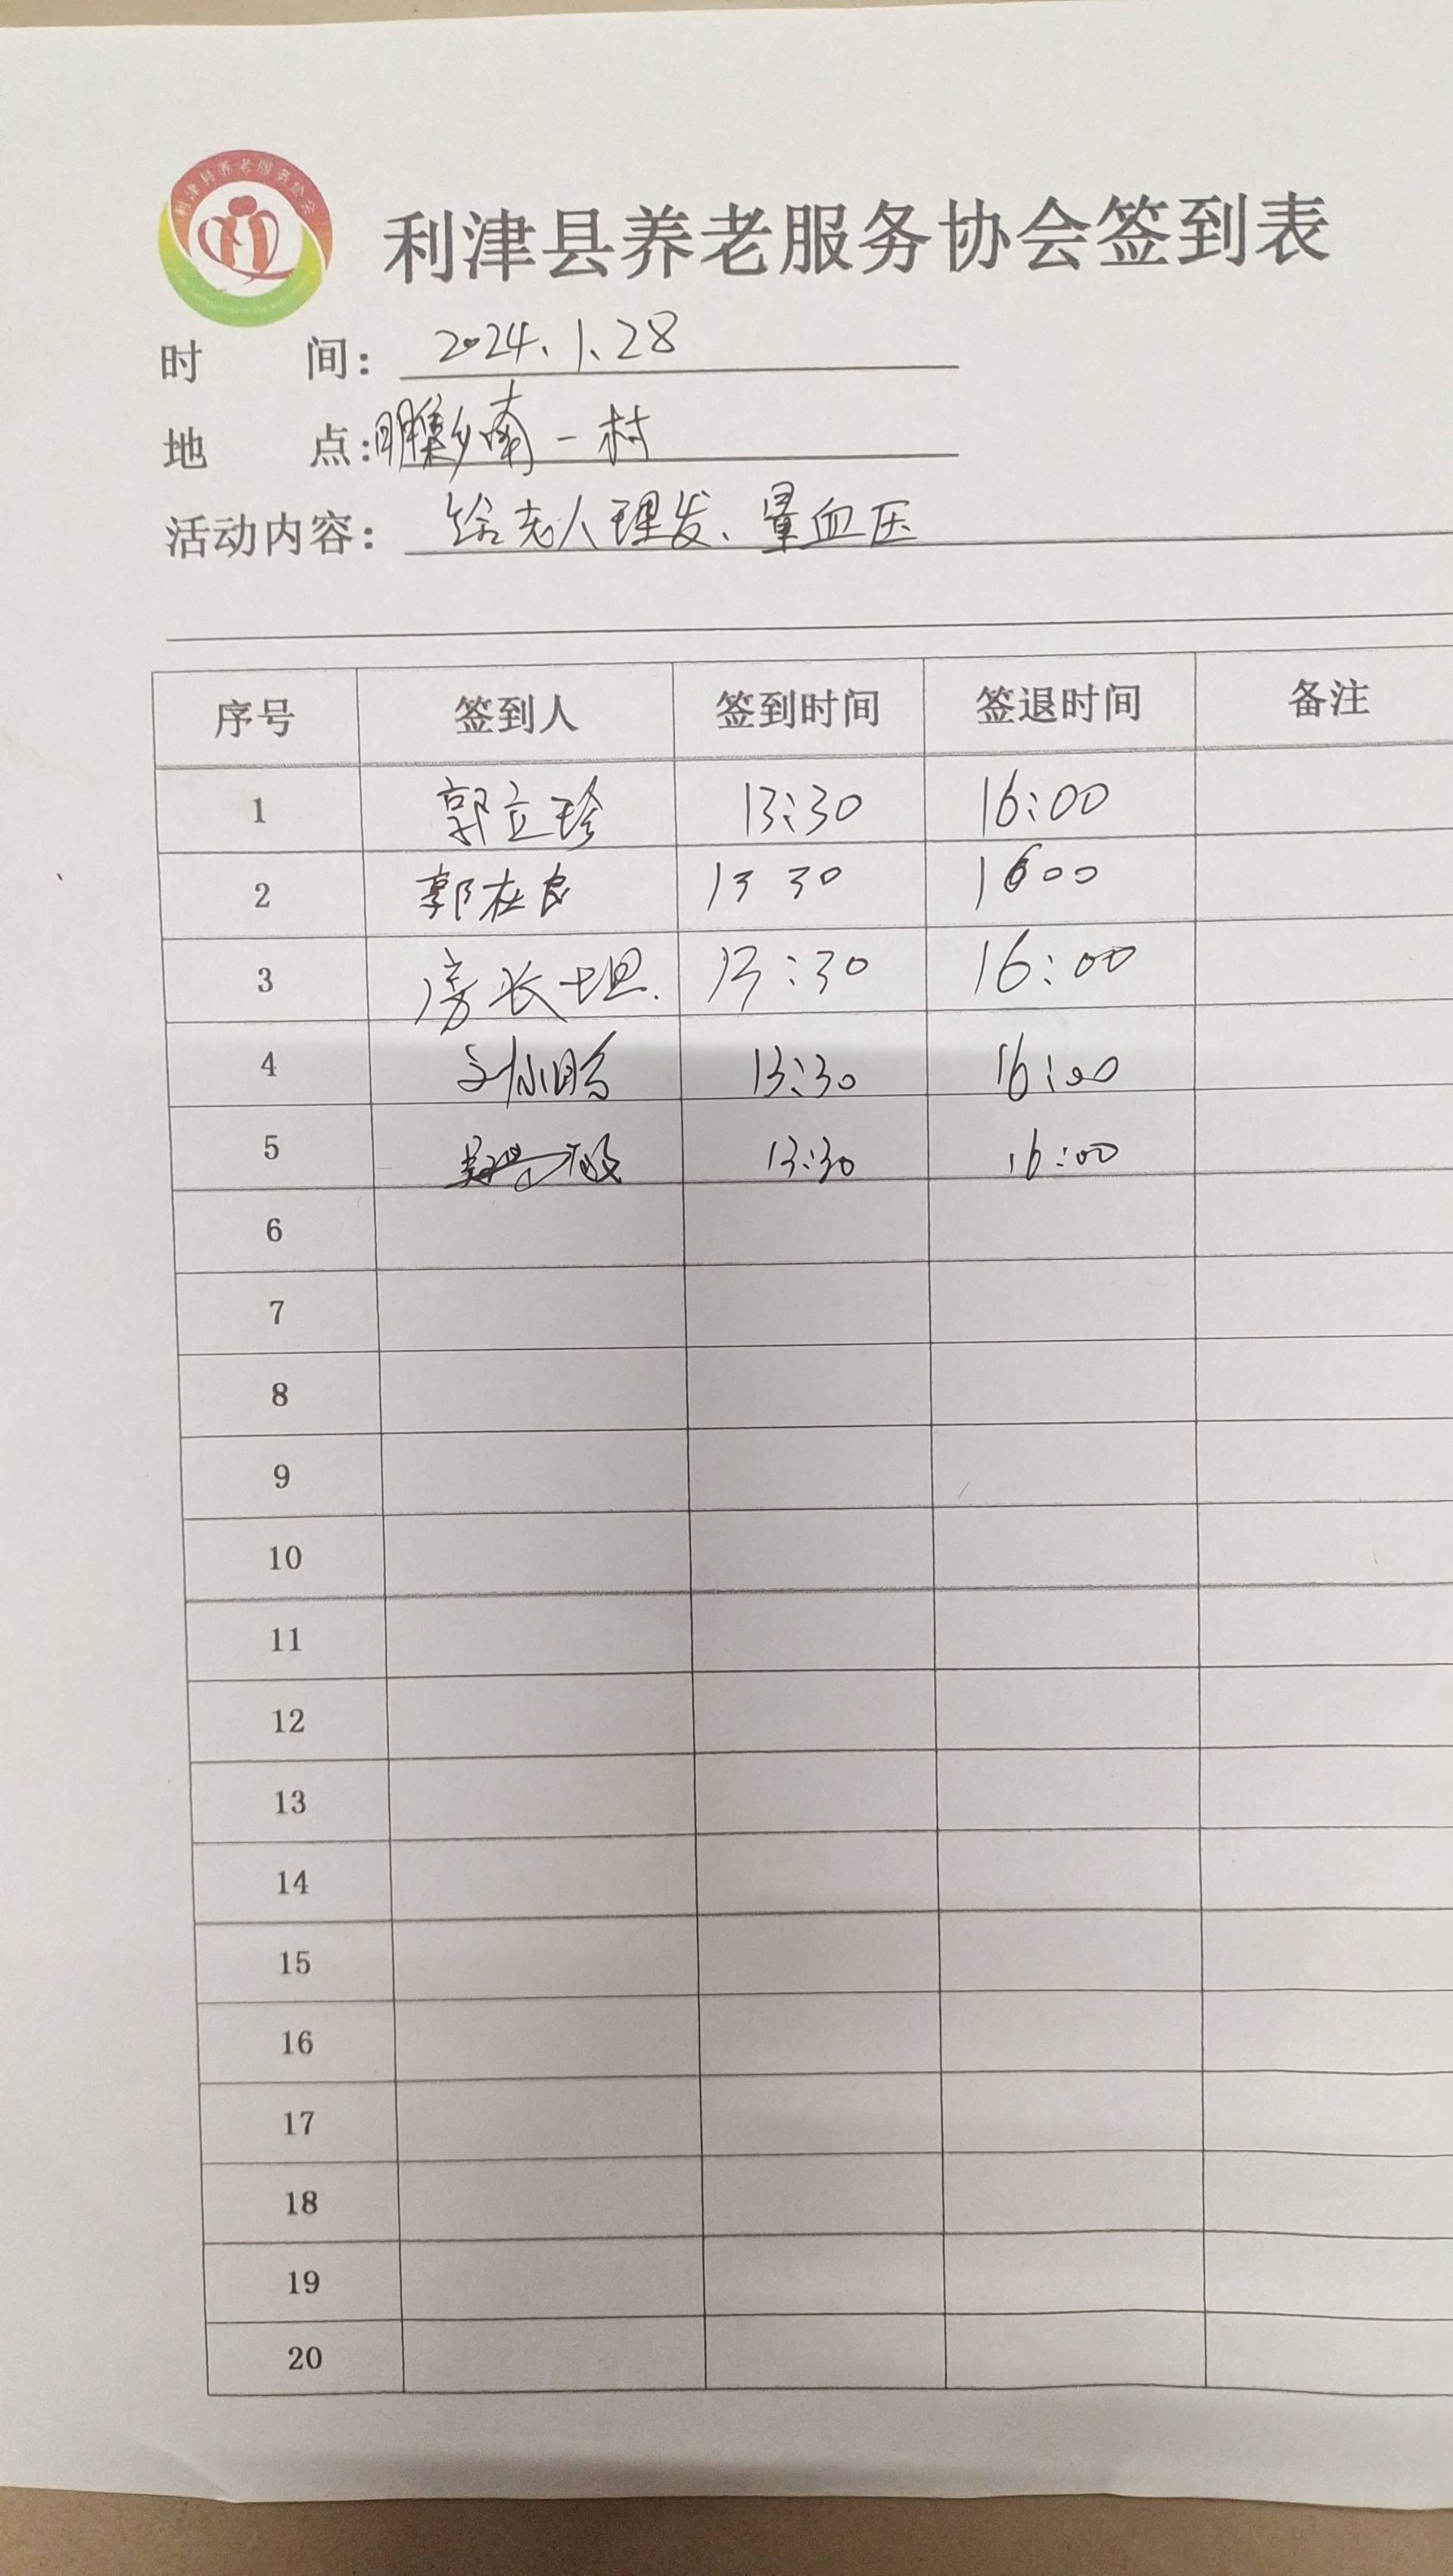 利津县养老服务协会
利津县养老服务协会签到表
时 间: 2024、1、28
地 点: 明集乡南一村
活动内容: 给老人理发、量血压
序号 签到人 签到时间 签退时间 备注
1 郭立珍 13:30 16:00
2 郭在良 13 30 16 00
3 房长坦 13:30 16:00
4 13:30 16:00
5 13:30 16:00
6
7
8
9
10
11
12
13
14
15
16
17
18
19
20